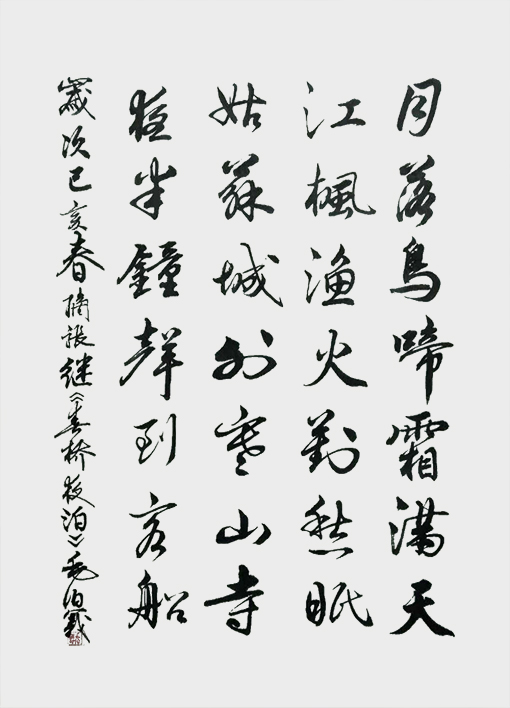 月落烏啼霜滿天
江楓漁火對愁眠
姑蘇城外寒山寺
夜半鐘聲到客船
歲次己亥春摘張继《桥夜泊》毛